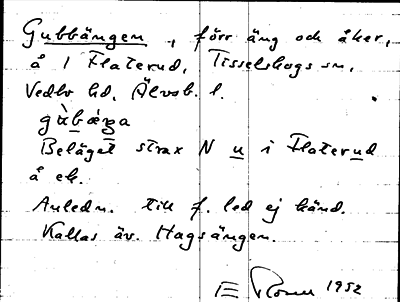 Gubbängen, förr äng och åker,
å 1 Flaterud, Tisselskogs sn,
Vedbo hd, Älvsb. l.
Beläget strax N u i Flaterud
å ek.
Anledn. till f. led ej känd.
Kallas äv. Hagsängen.
1952